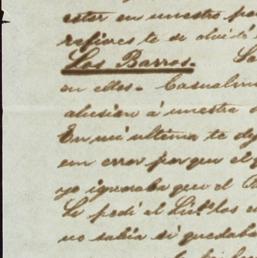 estar en nuestro po
refieres te se olvi
Los Barros.
en ellos. Casualm
alusion á nuestra
En mi ultima te de
em error por que el
yo ignoraba que el
Le pedi al Lis.
no sabia si quedaba